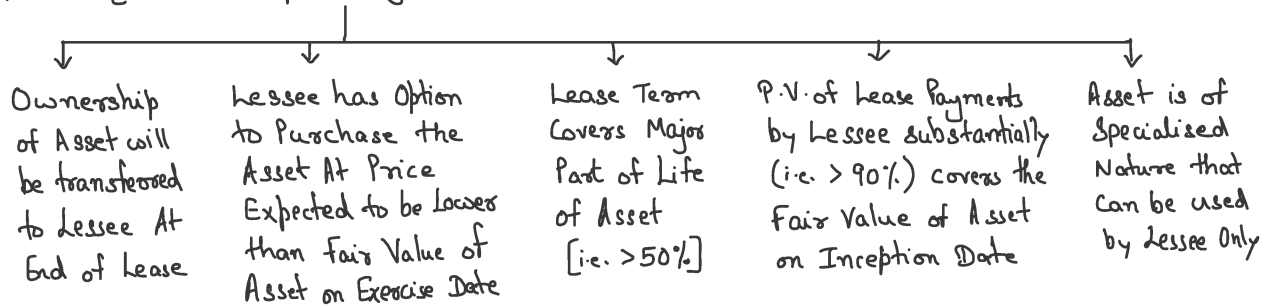 Ownership
of Asset will
be transferred
to Lessee At
End of Lease
Lessee has Option
to Purchase the
Asset At Price
Expected to be Lower
than Fair Value of
Asset on Exercise Date
Lease Term
Covers Major
Part of Life
of Asset
[i.e. >50%]
P.V. of Lease Payments
by Lessee substantially
(i.e. > 90%) covers the
Fair Value of Asset
on Inception Date
Asset is of
Specialised
Nature that
Can be used
by Lessee Only